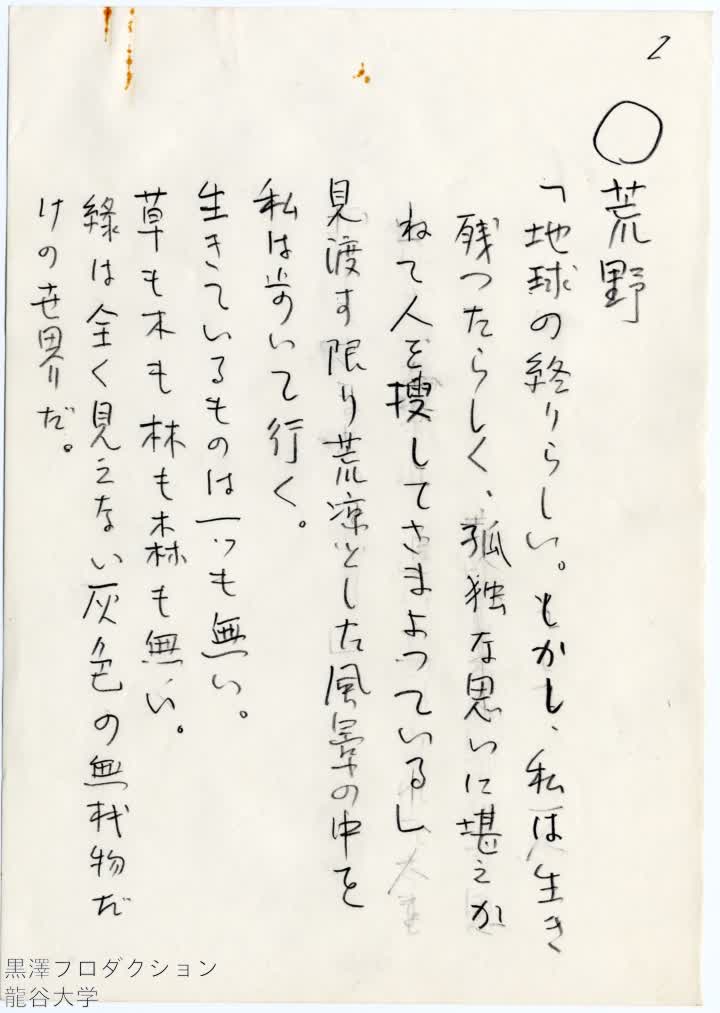 2
○荒野
「地球の終りらしい。しかし、私は生き
残つたらしく、孤独な思いに堪えか
ねて人を捜してさまよつている」
見渡す限り荒涼とした風景の中を
私は歩いて行く。
生きているものは一つも無い。
草も木も林も森も無い。
緑は全く見えない灰色の無機物だ
けの世界だ。
黒澤プロダクション
龍谷大学